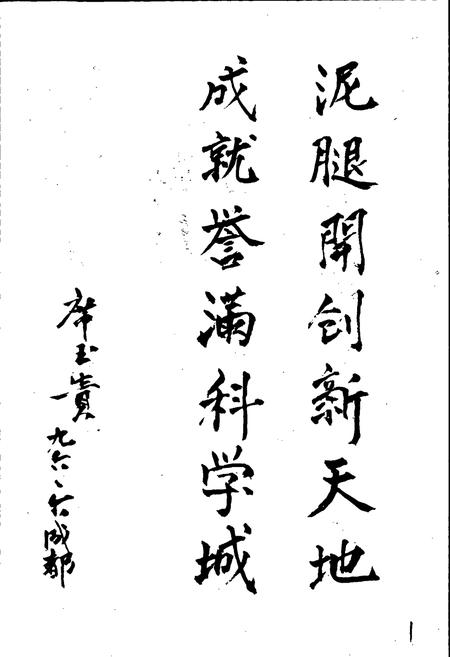 泥腿開创新天地
成就誉满科学城
席玉貴 九六、六成都
1